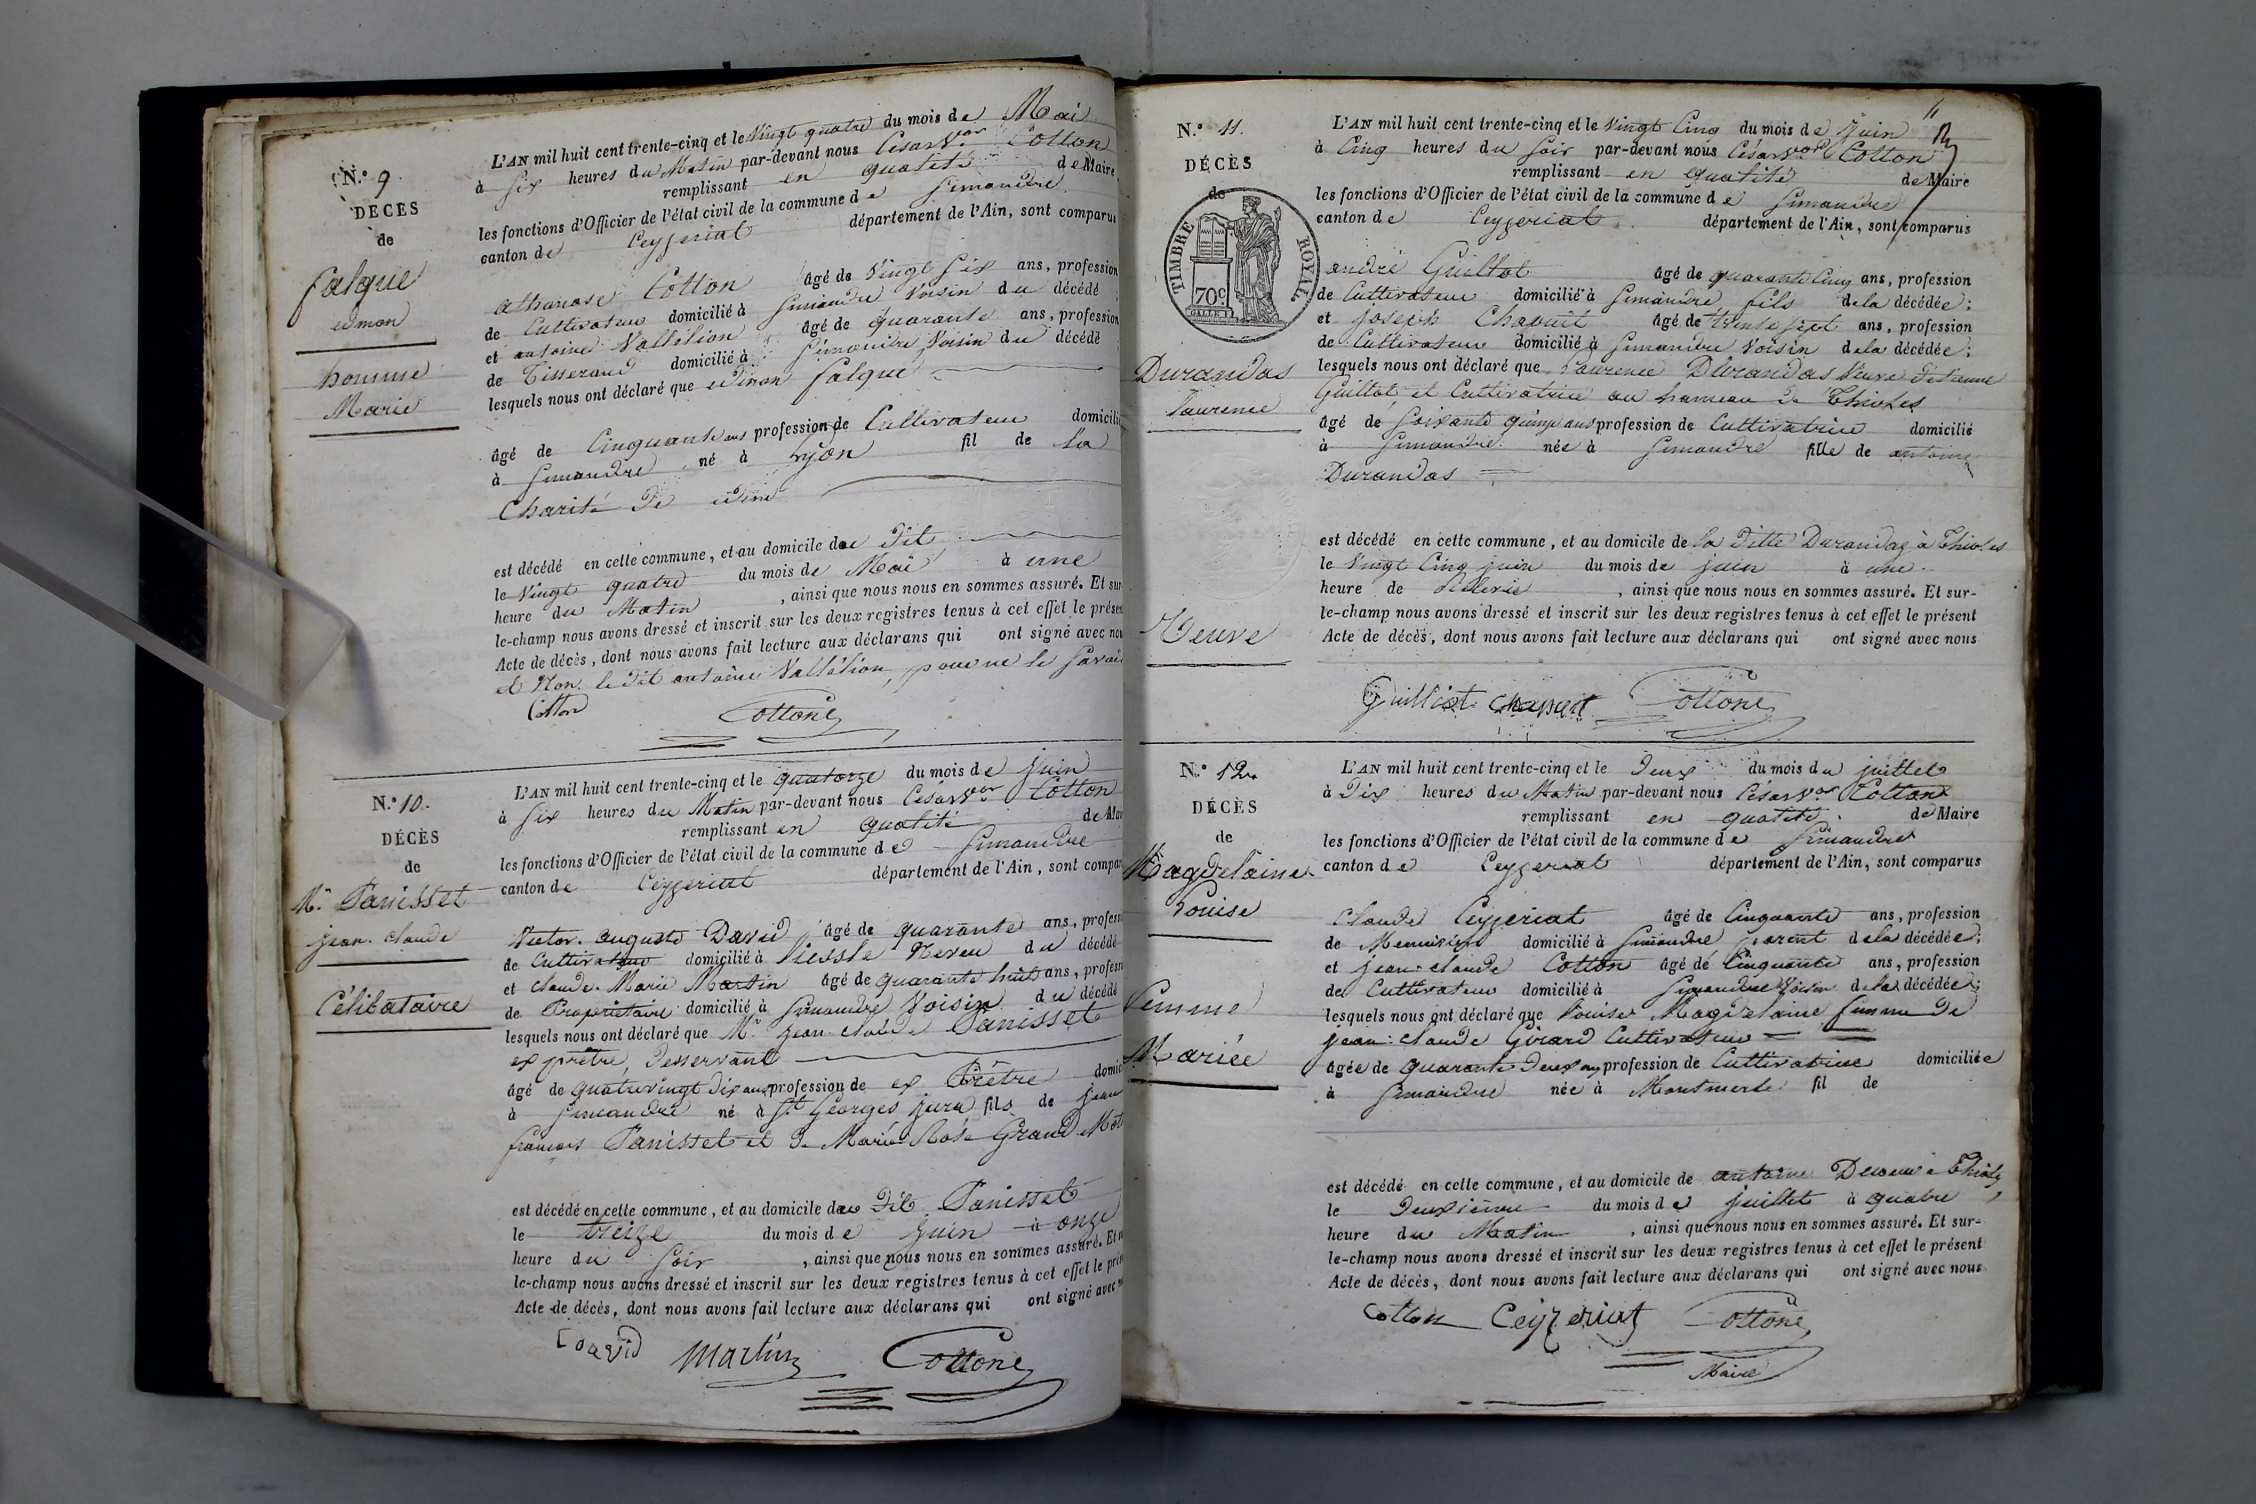 N.º 9
DÉCÈS
de
falque
edmon
homme
Marié
L'AN mil huit cent trente-cinq et le Vingt quatre du mois de Mai
à Six heures du Matin par-devant nous César Vor Cotton
remplissant en qualité de Maire
les fonctions d'Officier de l'état civil de la commune de Simandre
canton de Ceyzeriat département de l'Ain, sont comparus
athanase Cotton âgé de Vingt Six ans, profession
de Cultivateur domicilié à Simandre Voisin du décédé
et antoine Vallélion âgé de quarante ans, profession
de Tisserand domicilié à Simandre Voisin du décédé
lesquels nous ont déclaré que edmon falque
âgé de Cinquante ans profession de Cultivateur domicili
à Simandre né à Lyon fil de la
Charité de
est décédé en cette commune, et au domicile du dit
le Vingt quatre du mois de Mai à une
heure du Matin , ainsi que nous nous en sommes assuré. Et sur-
le-champ nous avons dressé et inscrit sur les deux registres tenus à cet effet le présen
Acte de décès, dont nous avons fait lecture aux déclarans qui ont signé avec nou
et Non le dit antoine Vallélion, pour ne le savoir
Cotton Cottone
N.º 10.
DÉCÈS
de
Mr Panisset
jean claude
Célibataire
L'AN mil huit cent trente-cinq et le quatorze du mois de juin
à Six heures du Matin par-devant nous César Vor Cotton
remplissant en qualité de Mai
les fonctions d'Officier de l'état civil de la commune de Simandre
canton de Ceyzeriat département de l'Ain, sont compar
Victor auguste David âgé de quarante ans, profess
de Cultivateur domicilié à Viessle Neveu du décédé
et claude Marie Martin âgé de quarante huit ans, profess
de Propriétaire domicilié à Simandre Voisin du décédé
lesquels nous ont déclaré que Mr jean claude Panisset
ex prêtre, desservant
âgé de quatrevingt dix ans profession de ex Prêtre domic
à Simandre né à St Georges jura fils de jean
françois Panisset et de Marie Rose Grand Mot
est décédé en cette commune, et au domicile du dit Panisset
le treize du mois de juin à onze
heure du Soir , ainsi que nous nous en sommes assuré. Et
le-champ nous avons dressé et inscrit sur les deux registres tenus à cet effet le prés
Acte de décès, dont nous avons fait lecture aux déclarans qui ont signé avec n
David Martin Cottone
N.º 11.
DÉCÈS
de
TIMBRE ROYAL
70c
Durandas
Laurence
Veuve
L'AN mil huit cent trente-cinq et le Vingt Cinq du mois de Juin
à Cinq heures du Soir par-devant nous César Vor Cotton
remplissant en qualité de Maire
les fonctions d'Officier de l'état civil de la commune de Simandre
canton de Ceyzeriat département de l'Ain, sont comparus
andré Guillot âgé de quarante Cinq ans, profession
de Cultivateur domicilié à Simandre fils de la décédée;
et joseph Chapuit âgé de trente sept ans, profession
de Cultivateur domicilié à Simandre Voisin de la décédée;
lesquels nous ont déclaré que Laurence Durandas Veuve d'etienne
Guillot et Cultivatrice au hameau de Thioles
âgé de Soixante quinze ans profession de Cultivatrice domicilié
à Simandre née à Simandre fille de antoine
Durandas
est décédé en cette commune, et au domicile de la ditte Durandas à Thioles
le Vingt Cinq juin du mois de juin à une
heure de , ainsi que nous nous en sommes assuré. Et sur-
le-champ nous avons dressé et inscrit sur les deux registres tenus à cet effet le présent
Acte de décès, dont nous avons fait lecture aux déclarans qui ont signé avec nous
Guilliot Chapuit Cottone
N.º 12.
DÉCÈS
de
Magdelaine
Louise
Femme
Mariée
L'AN mil huit cent trente-cinq et le Deux du mois du juillet
à Dix heures du Matin par-devant nous César Vor Cotton
remplissant en qualité de Maire
les fonctions d'Officier de l'état civil de la commune de Simandre
canton de Ceyzeriat département de l'Ain, sont comparus
Claude Ceyzeriat âgé de Cinquante ans, profession
de Menuisier domicilié à Simandre parent de la décédée;
et jean claude Cotton âgé de Cinquante ans, profession
de Cultivateur domicilié à Simandre Voisin de la décédée;
lesquels nous ont déclaré que Louise Magdelaine femme de
jean claude Girard Cultivateur
âgée de quarante Deux ans profession de Cultivatrice domiciliée
à Simandre née à Montmerle fil de
est décédé en cette commune, et au domicile de antoine à Thioles
le Deuxième du mois de juillet à quatre
heure du Matin , ainsi que nous nous en sommes assuré. Et sur-
le-champ nous avons dressé et inscrit sur les deux registres tenus à cet effet le présent
Acte de décès, dont nous avons fait lecture aux déclarans qui ont signé avec nous
Cotton Ceyzeriat Cottone
Maire